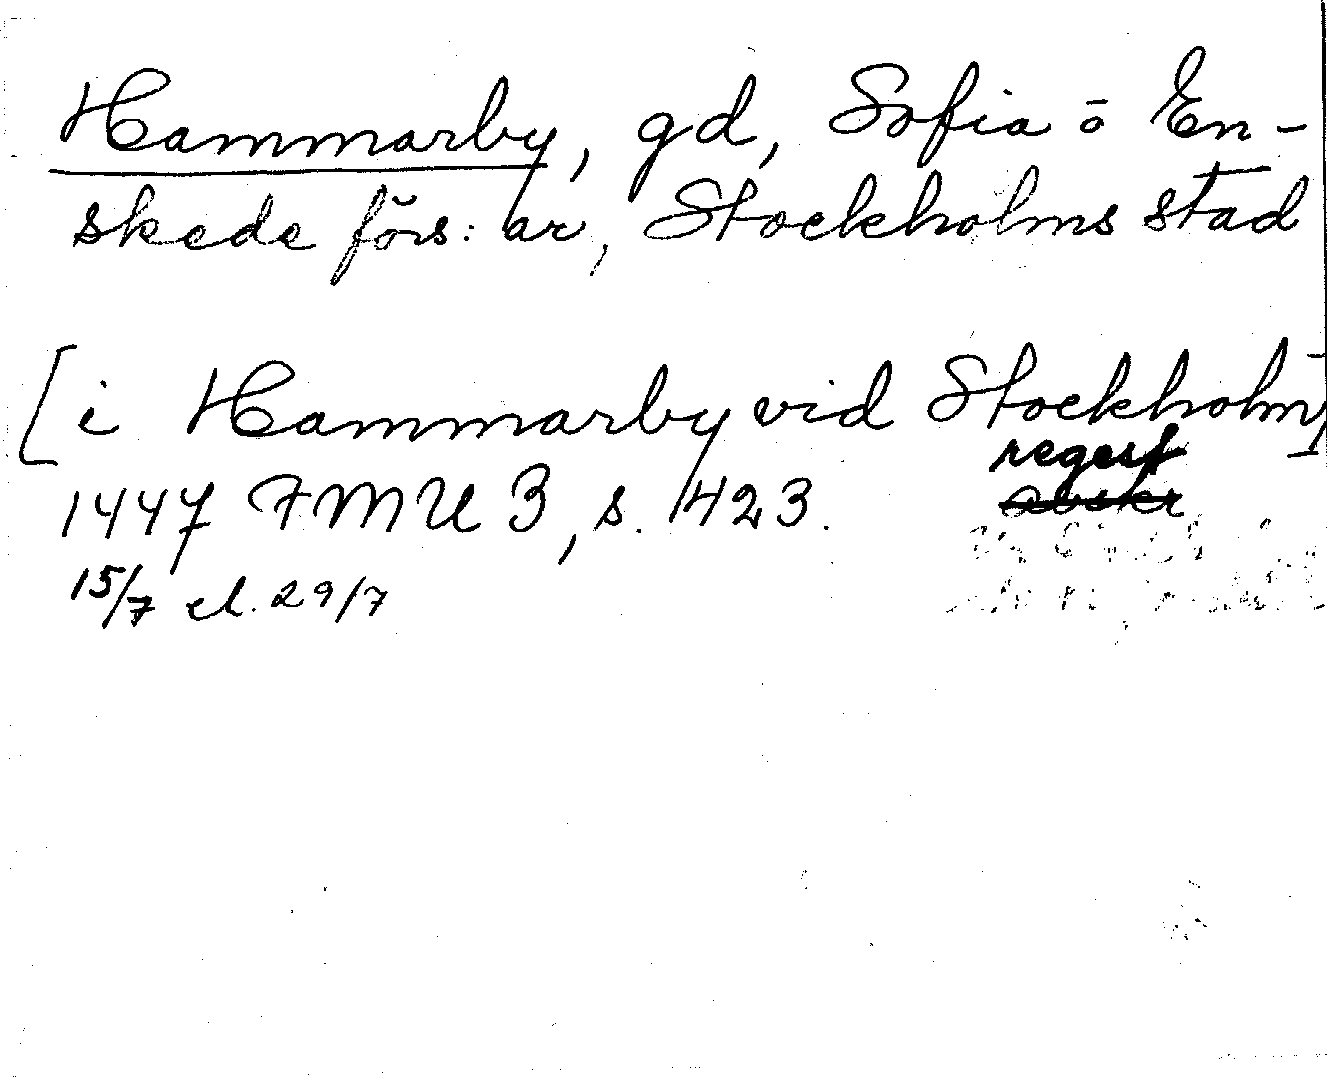 Hammarby, gd, Sofia o En-
skede förs:ar, Stockholms stad
[i Hammarby vid Stockholm]
regest
1447 FMU 3, s. 423.
15/7 el. 29/7